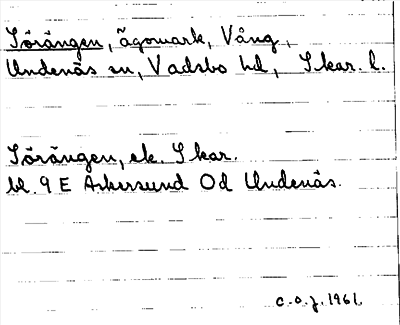 Sörängen, ägomark, Vång,
Undenäs sn, Vadsbo hd, Skar. l.
Sörängen, ek. Skar.
bl. 9 E Askersund Od Undenäs.
C.O.J. 1961.